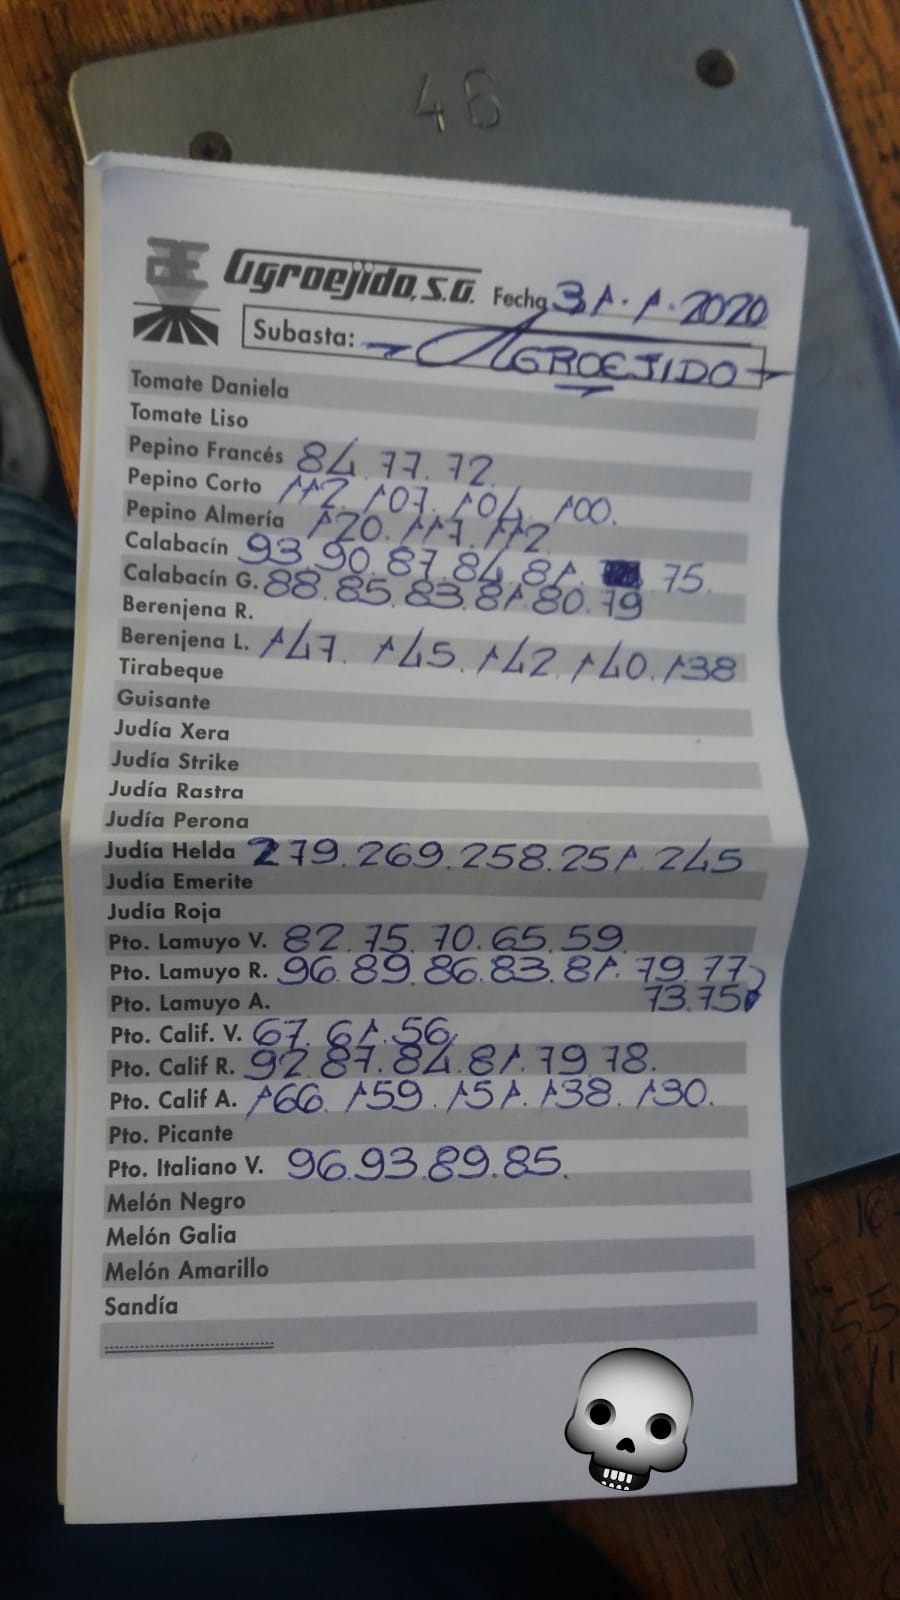 46
Agroejido, S.A. Fecha 31.1.2020
Subasta: AGROEJIDO
Tomate Daniela
Tomate Liso
Pepino Francés 84.77.72.
Pepino Corto 112.107.104.100.
Pepino Almería 120.117.112
Calabacín 93.90.87.84.81. 75.
Calabacín G. 88.85.83.81.80.79
Berenjena R.
Berenjena L. 147.145.142.140.138
Tirabeque
Guisante
Judía Xera
Judía Strike
Judía Rastra
Judía Perona
Judía Helda 279.269.258.251.245
Judía Emerite
Judía Roja
Pto. Lamuyo V. 82.75.70.65.59
Pto. Lamuyo R. 96.89.86.83.81.79.77
Pto. Lamuyo A. 73.75
Pto. Calif. V. 67.61.56
Pto. Calif R. 92.87.84.81.79.78.
Pto. Calif A. 166.159.151.138.130.
Pto. Picante
Pto. Italiano V. 96.93.89.85.
Melón Negro
Melón Galia
Melón Amarillo
Sandía